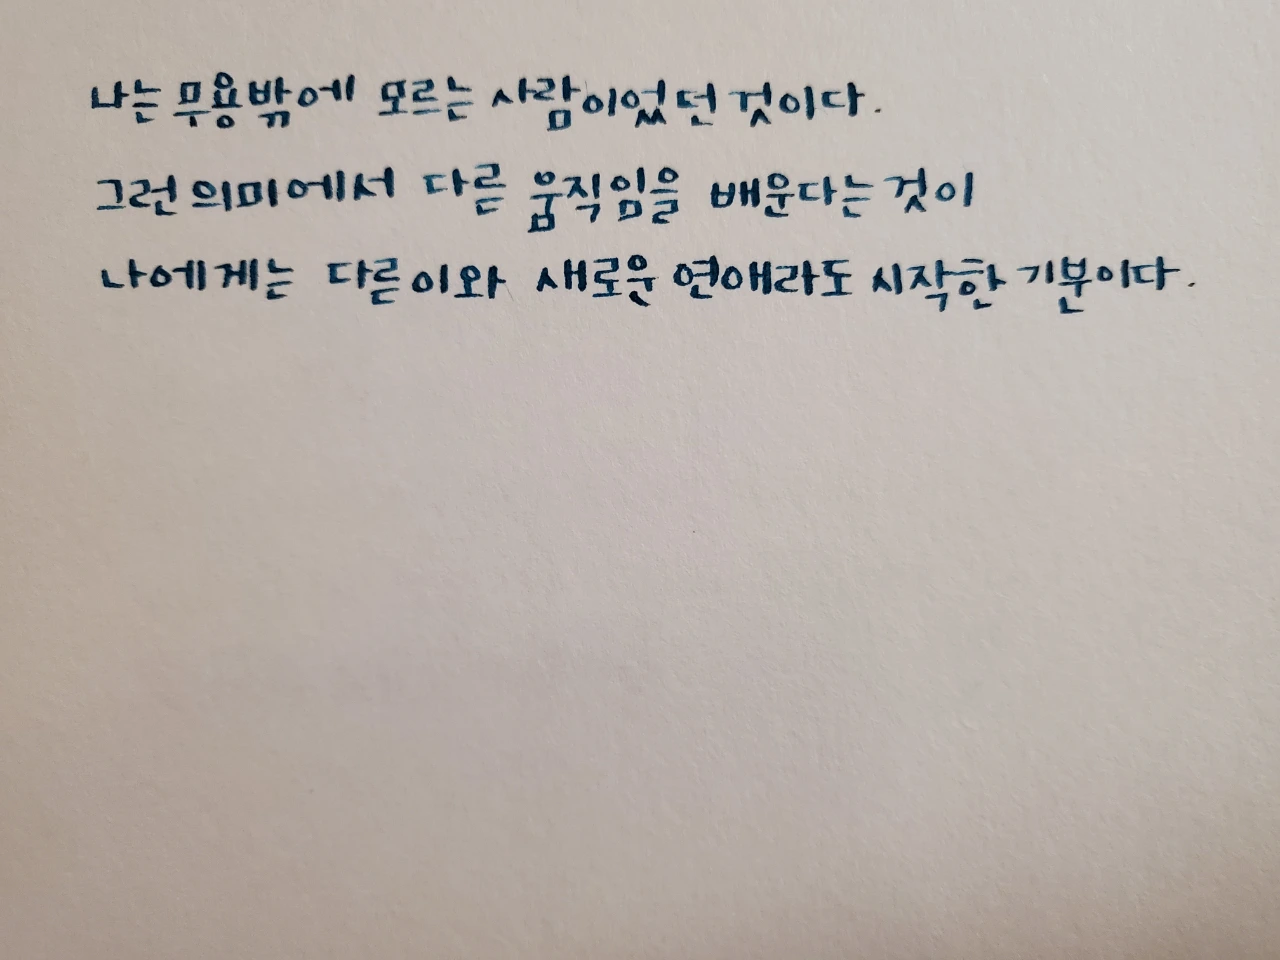 나는 무용밖에 모르는 사람이었던 것이다.
그런 의미에서 다른 움직임을 배운다는 것이
나에게는 다른이와 새로운 연애라도 시작한 기분이다.